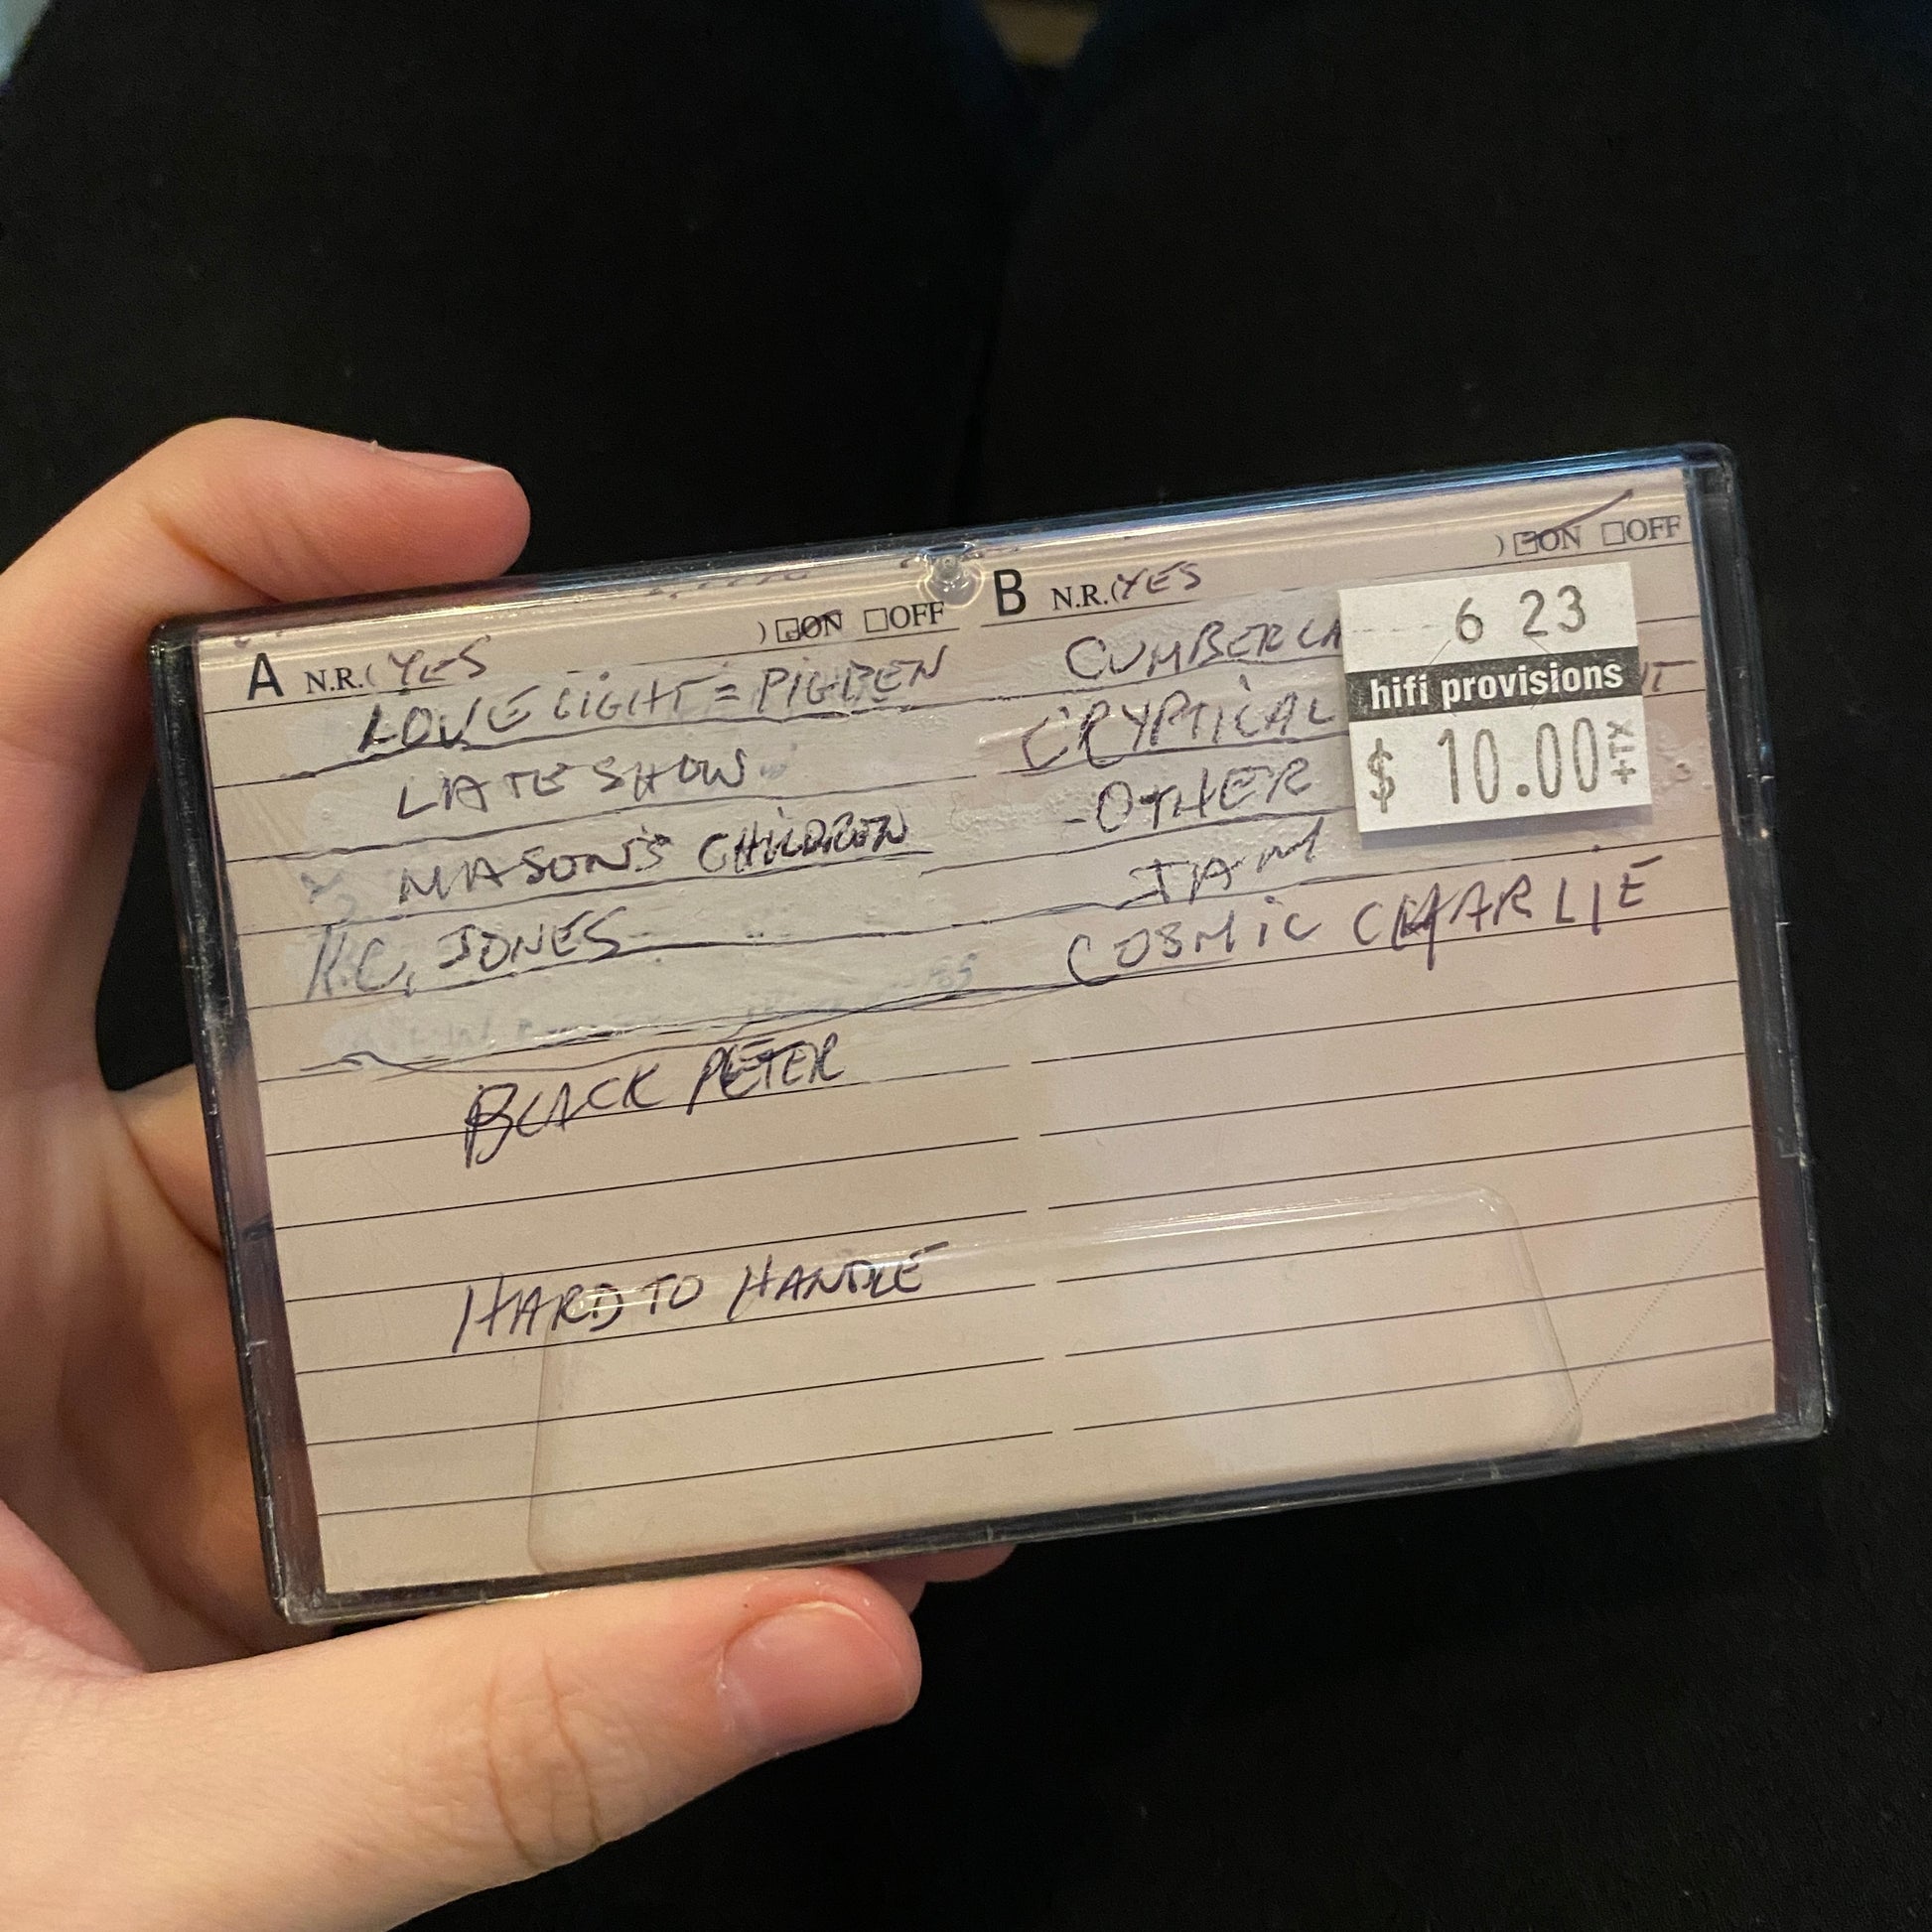 A N.R.(YES ) ☐ON ☐OFF
LOVE LIGHT = PIGPEN
LATE SHOW
MASON'S CHILDREN
K.C. JONES
BLACK PETER
HARD TO HANDLE
B N.R.(YES ) ☐ON ☐OFF
CUMBERLA
CRYPTICAL
-OTHER
JAM
COSMIC CHARLIE
6 23
hifi provisions
$ 10.00 +TX